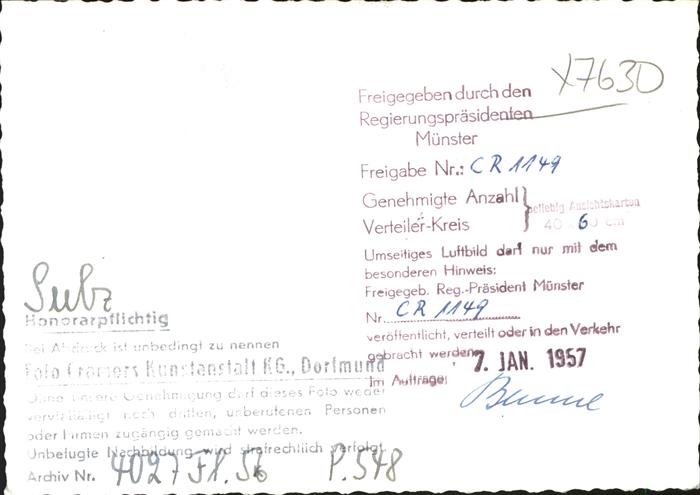 X7630
Freigegeben durch den
Regierungspräsidenten
Münster
Freigabe Nr.: CR 1149
Genehmigte Anzahl
Verteiler-Kreis
beliebig Ansichtskarten
40 60 cm
Umseitiges Luftbild darf nur mit dem
besonderen Hinweis:
Freigegeb. Reg.-Präsident Münster
Nr. CR 1149
veröffentlicht, verteilt oder in den Verkehr
gebracht werden.
7. JAN. 1957
Im Auftrage:
Honorarpflichtig
Bei Abdruck ist unbedingt zu nennen
Foto Cramers Kunstanstalt KG., Dortmund
Ohne unsere Genehmigung darf dieses Foto weder
vervielfältigt noch dritten, unberufenen Personen
oder Firmen zugängig gemacht werden.
Unbefugte Nachbildung wird strafrechtlich verfolgt
Archiv Nr. 4027 Fl. 56 P.548